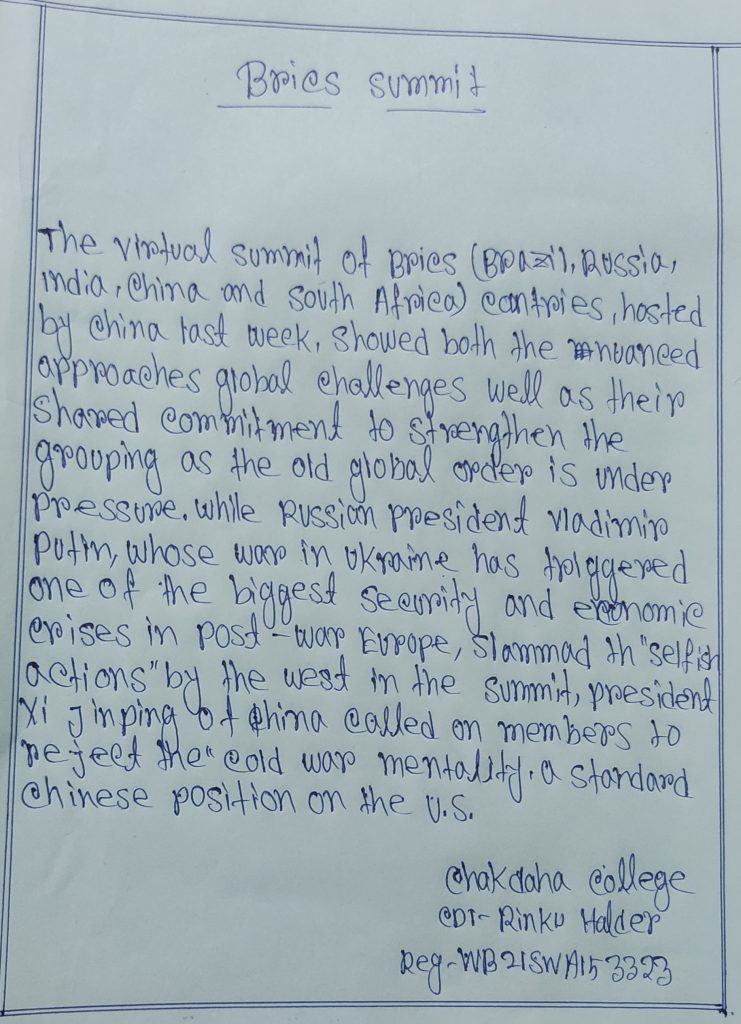 Brics summit
The virtual summit of Brics (Brazil, Russia,
india, China and south Africa) contries, hosted
by china last week, showed both the nuanced
approaches global challenges well as their
shared commitment to strengthen the
grouping as the old global order is under
pressure. while Russian president vladimir
putin, whose war in ukraine has triggered
one of the biggest security and economic
crises in post-war Europe, slammad th "selfish
actions" by the west in the summit, president
Xi Jinping of china called on members to
reject the "cold war mentality. a standard
chinese position on the U.S.
Chakdaha College
CDT- Rinku Halder
Reg-WB21SWA153323